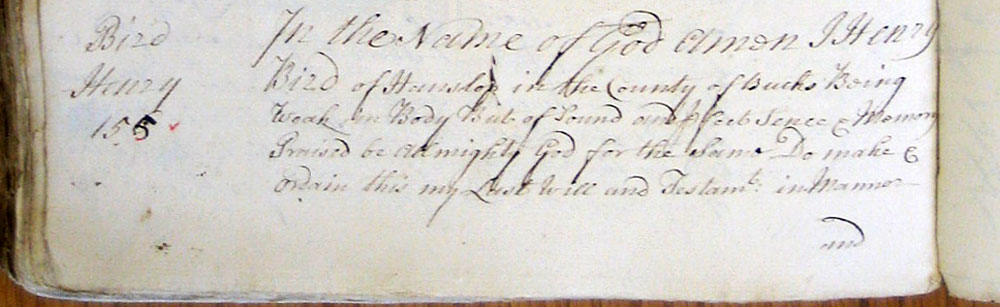 Bird
Henry
155
In the Name of God Amen I Henry
Bird of Hanslop in the County of Bucks Being
Weak in Body But of Sound and pfect Sence & Memory
Praised be Almighty God for the Same Do make &
Ordain this my Last Will and Testamt: in Manner
and